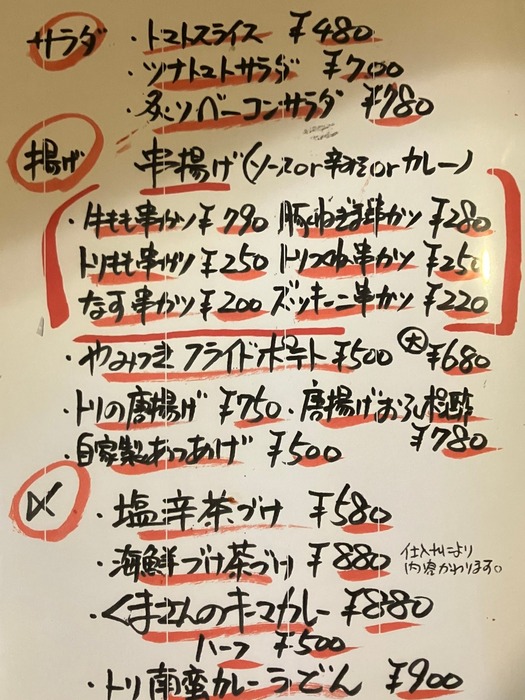 サラダ ・トマトスライス ¥480
・ツナトマトサラダ ¥700
・炙りベーコンサラダ ¥780
揚げ 串揚げ(ソースor辛みそorカレー)
・牛もも串カツ ¥290 豚ねぎま串カツ ¥280
トリもも串カツ ¥250 トリつくね串カツ ¥250
なす串カツ ¥200 ズッキーニ串カツ ¥220
・やみつきフライドポテト ¥500 大 ¥680
・トリの唐揚げ ¥750 ・唐揚げおろしポン酢
・自家製あつあげ ¥500 ¥780
〆 ・塩辛茶づけ ¥580
・海鮮づけ茶づけ ¥880 仕入れにより
内容かわります。
・くまさんのキーマカレー ¥880
ハーフ ¥500
・トリ南蛮カレーうどん ¥900